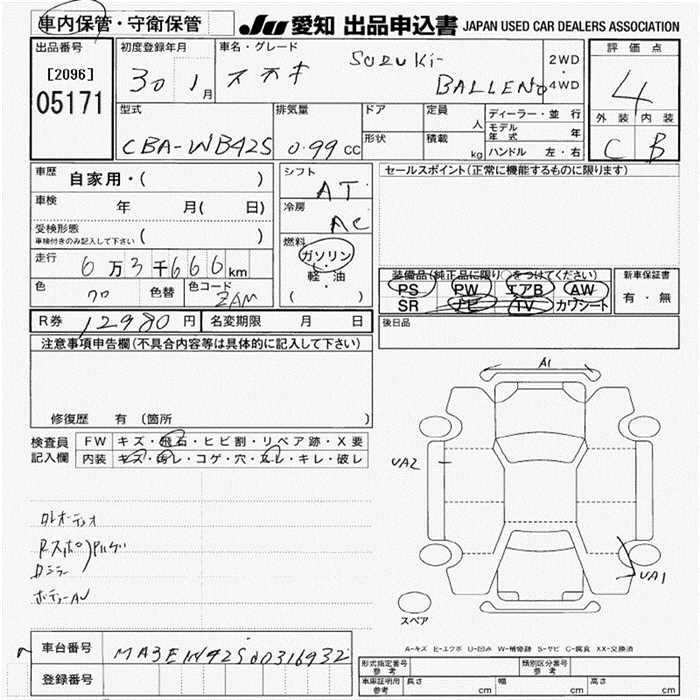 車内保管・守衛保管
JU 愛知 出品申込書 JAPAN USED CAR DEALERS ASSOCIATION
出品番号
[2096]
05171
初度登録年月
30 1月
車名・グレード
スズキ SUZUKI-
BALLENO
2WD
・
4WD
評価点
4
外装 内装
C B
型式
CBA-WB42S
排気量
0.99 CC
ドア
形状
定員
人
積載
kg
ディーラー・並行
モデル年式 年
ハンドル 左・右
車歴 自家用・( )
車検 年 月( 日)
受検形態
車検付きのみ記入して下さい ( )
走行 6万3千666km
色 クロ 色替 色コード ZAM
シフト
AT
冷房
AC
燃料
ガソリン
・
軽・油
( )
セールスポイント(正常に機能するものに限ります)
装備品(純正品に限り○をつけてください)
PS PW エアB AW
SR ナビ TV カワシート
新車保証書
有・無
R券 12980円 名変期限 月 日
後日品
注意事項申告欄(不具合内容等は具体的に記入して下さい)
修復歴 有(箇所
検査員
記入欄
FW キズ・飛石・ヒビ割・リペア跡・X要
内装 キズ・汚レ・コゲ・穴・スレ・キレ・破レ
A1
UA2
UA1
スペア
クレオーディオ
Rスポ
ボディーAU
A-キズ E-エクボ U-凹み W-補修跡 S-サビ C-腐食 XX-交換済
車台番号 MA3EWB42S00316932
登録番号
形式指定番号
参考
類別区分番号
参考
車庫証明用
参考
長さ cm 幅 cm 高さ cm